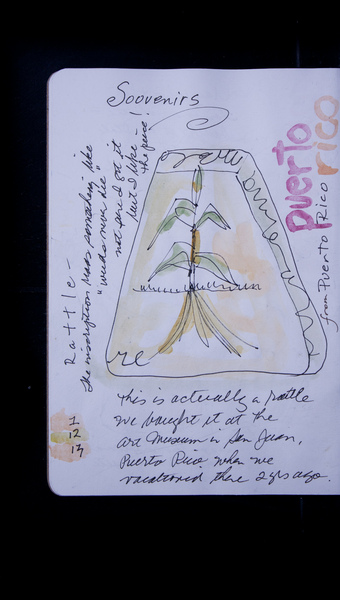 Soovenirs
Rattle-
The inscription reads something like
"weeds never die"
not sure I got it
but I like
the piece!
puerto
rico
from Puerto Rico
1
12
13
This is actually a rattle
we bought it at the
art Museum in San Juan,
Puerto Rico when we
vacationed there 2 yrs ago.